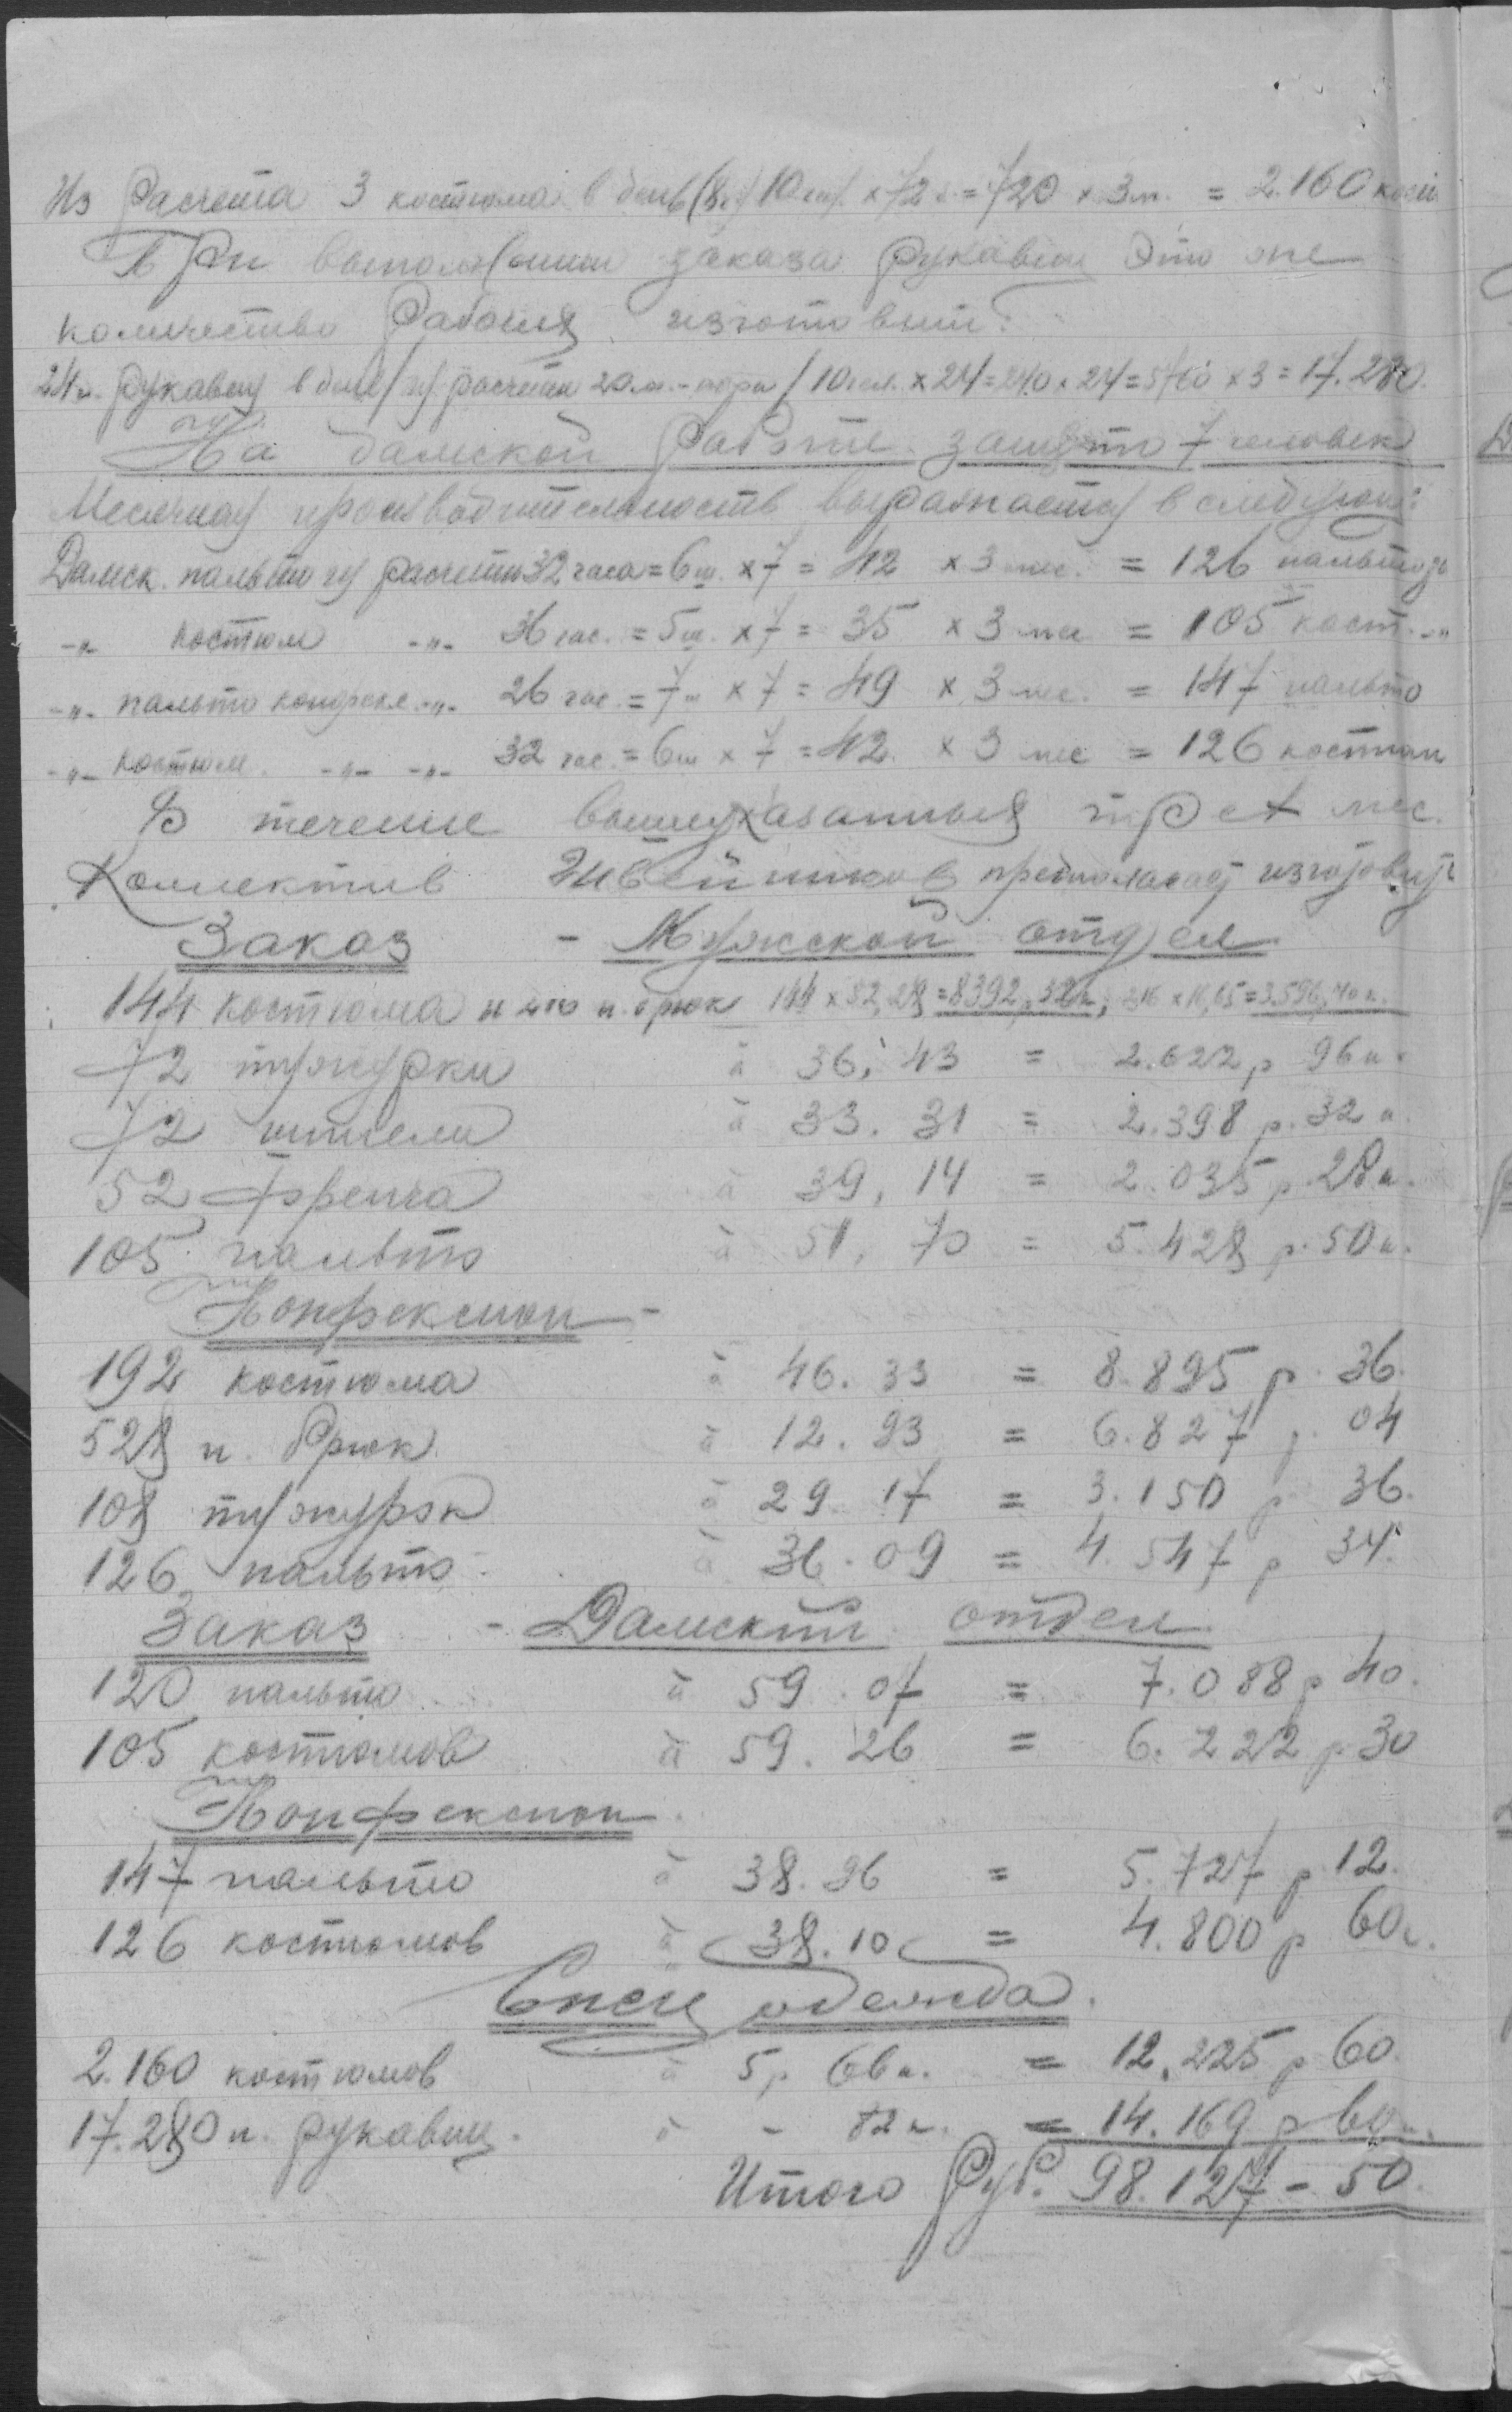 Из расчета 3 костюма в день (8 ч) 10 чел × 72 к. = 720 × 3 м. = 2.160 кост.
При выполнении заказа рукавиц это же
количество рабочих изготовит:
24 п. рукавиц в день / из расчета 20 м. - пара / 10 чел. × 24 = 240 × 24 = 5760 × 3 = 17.280.
На дамской работе занято 7 человек
Месячная производительность выражается в следующ:
Дамск. пальто из расчета 32 часа = 6 ш. × 7 = 42 × 3 мес. = 126 пальто
-„- костюм -„- 36 час. = 5 ш. × 7 = 35 × 3 мес = 105 кост. -„-
-„- пальто конфекс. -„- 26 час. = 7 ш × 7 = 49 × 3 мес. = 147 пальто
-„- костюм. -„- -„- 32 час. = 6 ш × 7 = 42. × 3 мес = 126 костюм
В течение вышеуказанных трех мес.
Коллектив Швейников предполагает изготовить
Заказ - Мужской отдел
144 костюма и 216 п. брюк 144 × 58,28 = 8392 р. 32 к, 216 × 16,65 = 3.596,40 к.
72 тужурки à 36,43 = 2.622 р 96 к.
72 шинели à 33.31 = 2.398 р. 32 к.
52 френча à 39,14 = 2.035 р. 28 к.
105 пальто à 51,70 = 5.428 р. 50 к.
Конфексион -
192 костюма à 46.33 = 8.895 р. 36.
528 п. брюк à 12.93 = 6.827 р. 04
108 тужурок à 29.17 = 3.150 р 36.
126 пальто à 36.09 = 4.547 р 34.
Заказ - Дамский отдел
120 пальто à 59.07 = 7.088 р 40.
105 костюмов à 59.26 = 6.222 р. 30
Конфексион.
147 пальто à 38.96 = 5.727 р. 12.
126 костюмов à 38.10 = 4.800 р 60 к.
Спец одежда.
2.160 костюмов à 5 р. 66 к. = 12.225 р 60.
17.280 п. рукавиц. à - 82 к. = 14.169 р 60 к.
Итого Руб. 98.127 - 50.